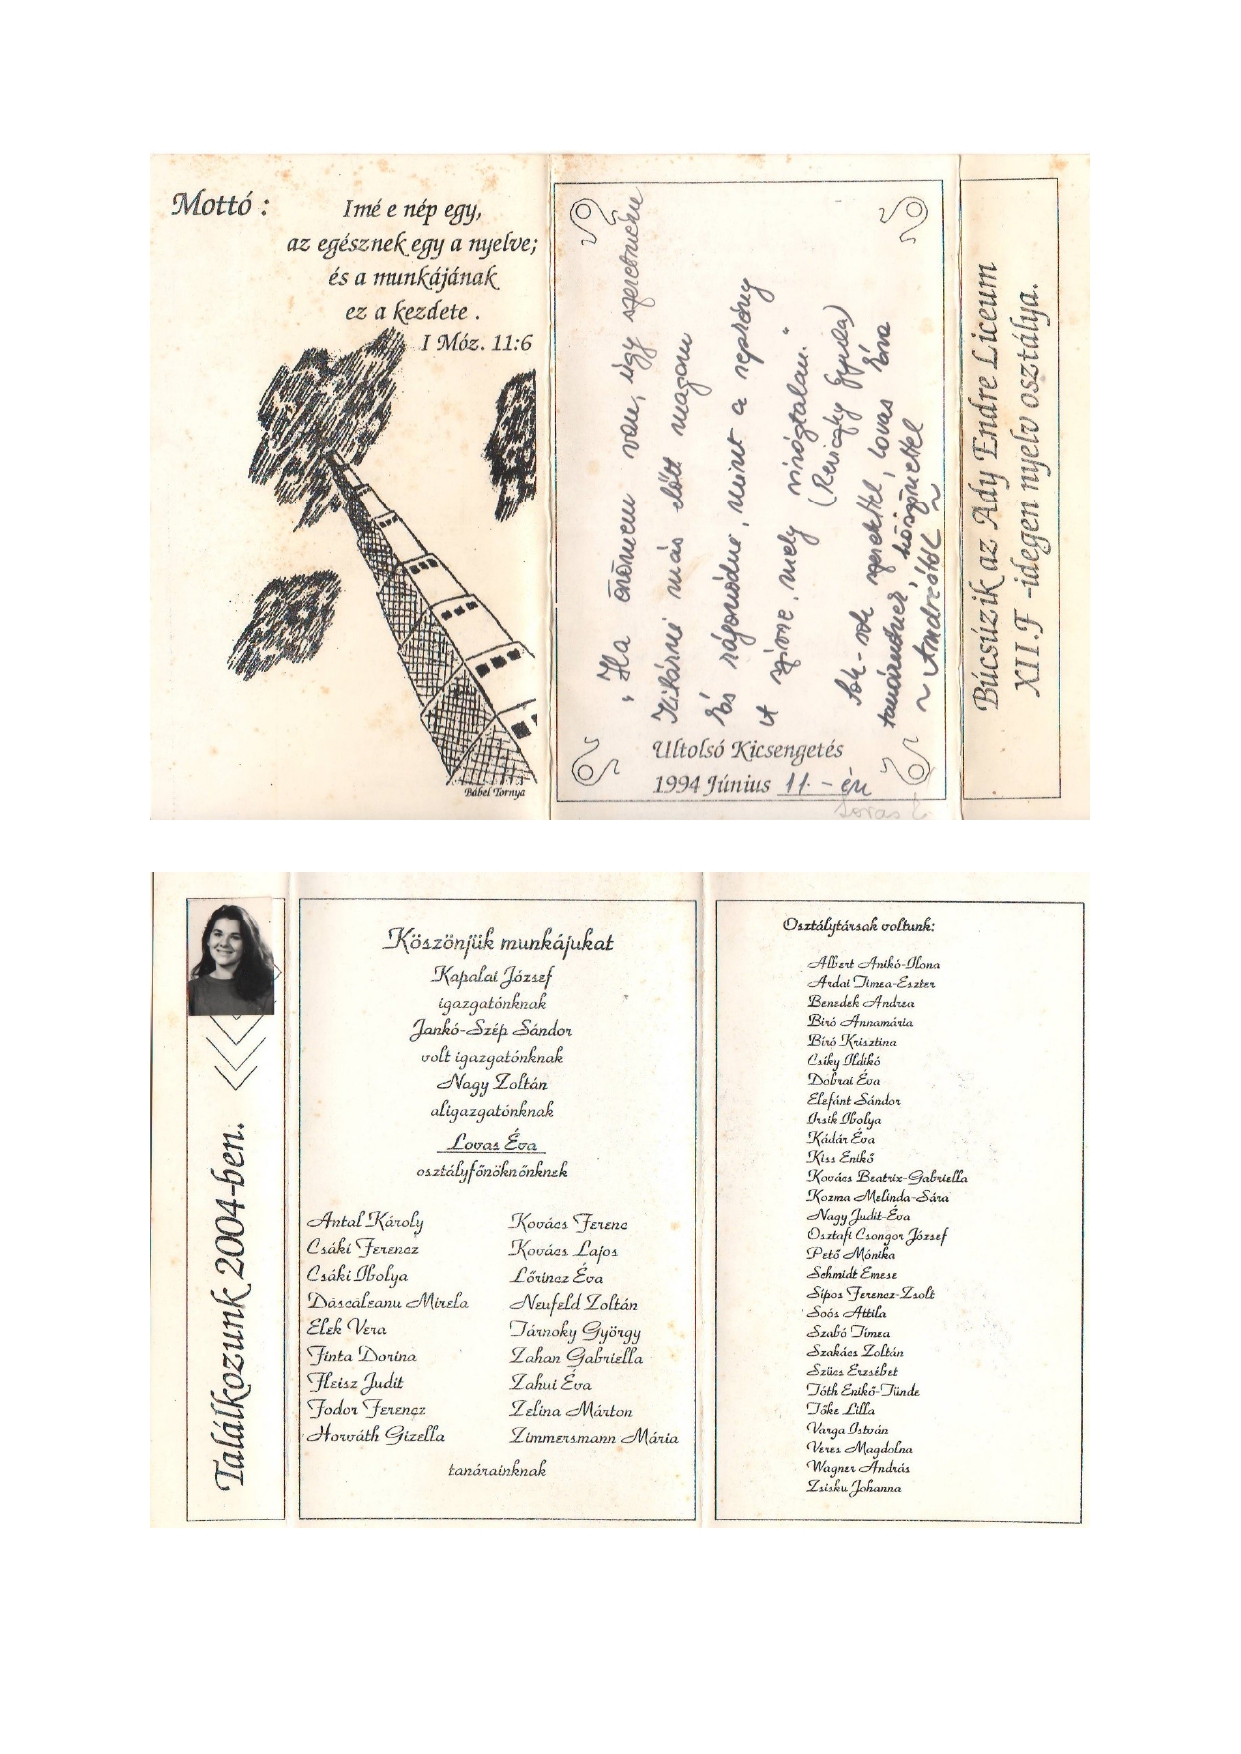 Mottó :
Imé e nép egy,
az egésznek egy a nyelve;
és a munkájának
ez a kezdete .
I Móz. 11:6
Bábel Tornya
"Ha örömem van, úgy szeretném
Kitárni más előtt magam
És ragyogni, mint a
A színe, mely virágtalan."
(Reviczky Gyula)
Sok-sok szeretettel, Lovas Éva
tanárnőnek, köszönettel
~ Andreától ~
Ultolsó Kicsengetés
1994 Június 11. - én
Lovas É
Búcsúzik az Ady Endre Liceum
XII.F -idegen nyelv osztálya.
Találkozunk 2004-ben.
Köszönjük munkájukat
Kapalai József
igazgatónknak
Jankó-Szép Sándor
volt igazgatónknak
Nagy Zoltán
aligazgatónknak
Lovas Éva
osztályfőnöknőnknek
Antal Károly
Csáki Ferencz
Csáki Ibolya
Dăscăleanu Mirela
Elek Vera
Finta Dorina
Fleisz Judit
Fodor Ferencz
Horváth Gizella
Kovács Ferenc
Kovács Lajos
Lőrincz Éva
Neufeld Zoltán
Tárnoky György
Zahan Gabriella
Zahui Éva
Zelina Márton
Zimmersmann Mária
tanárainknak
Osztálytársak voltunk:
Albert Anikó-Ilona
Ardai Tímea-Eszter
Benedek Andrea
Biró Annamária
Bíró Krisztina
Csiky Ildikó
Dobrai Éva
Elefánt Sándor
Irsik Ibolya
Kádár Éva
Kiss Enikő
Kovács Beatrix-Gabriella
Kozma Melinda-Sára
Nagy Judit-Éva
Osztafi Csongor József
Pető Mónika
Schmidt Emese
Sípos Ferencz-Zsolt
Soós Attila
Szabó Tímea
Szakács Zoltán
Szücs Erzsébet
Tóth Enikő-Tünde
Tőke Lilla
Varga István
Veres Magdolna
Wagner András
Zsisku Johanna